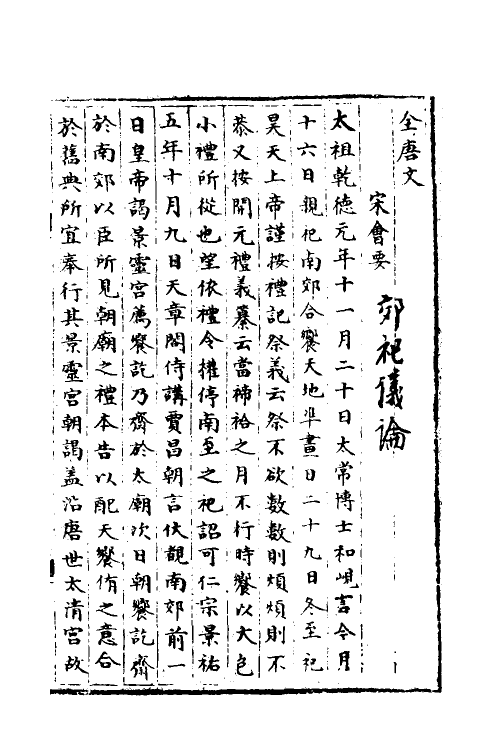 全唐文
宋會要 郊祀儀論
太祖乾德元年十一月二十日太常博士和峴言今月
十六日親祀南郊合饗天地準畫日二十九日冬至祀
昊天上帝謹按禮記祭義云祭不欲數數則煩煩則不
恭又按開元禮義纂云當禘祫之月不行時饗以大包
小禮所從也望依禮令權停南至之祀詔可仁宗景祐
五年十月九日天章閣侍講賈昌朝言伏覩南郊前一
日皇帝謁景靈宮薦饗訖乃齋於太廟次日朝饗訖齋
於南郊以臣所見朝廟之禮本告以配天饗侑之意合
於舊典所宜奉行其景靈宮朝謁盖沿唐世太清宮故